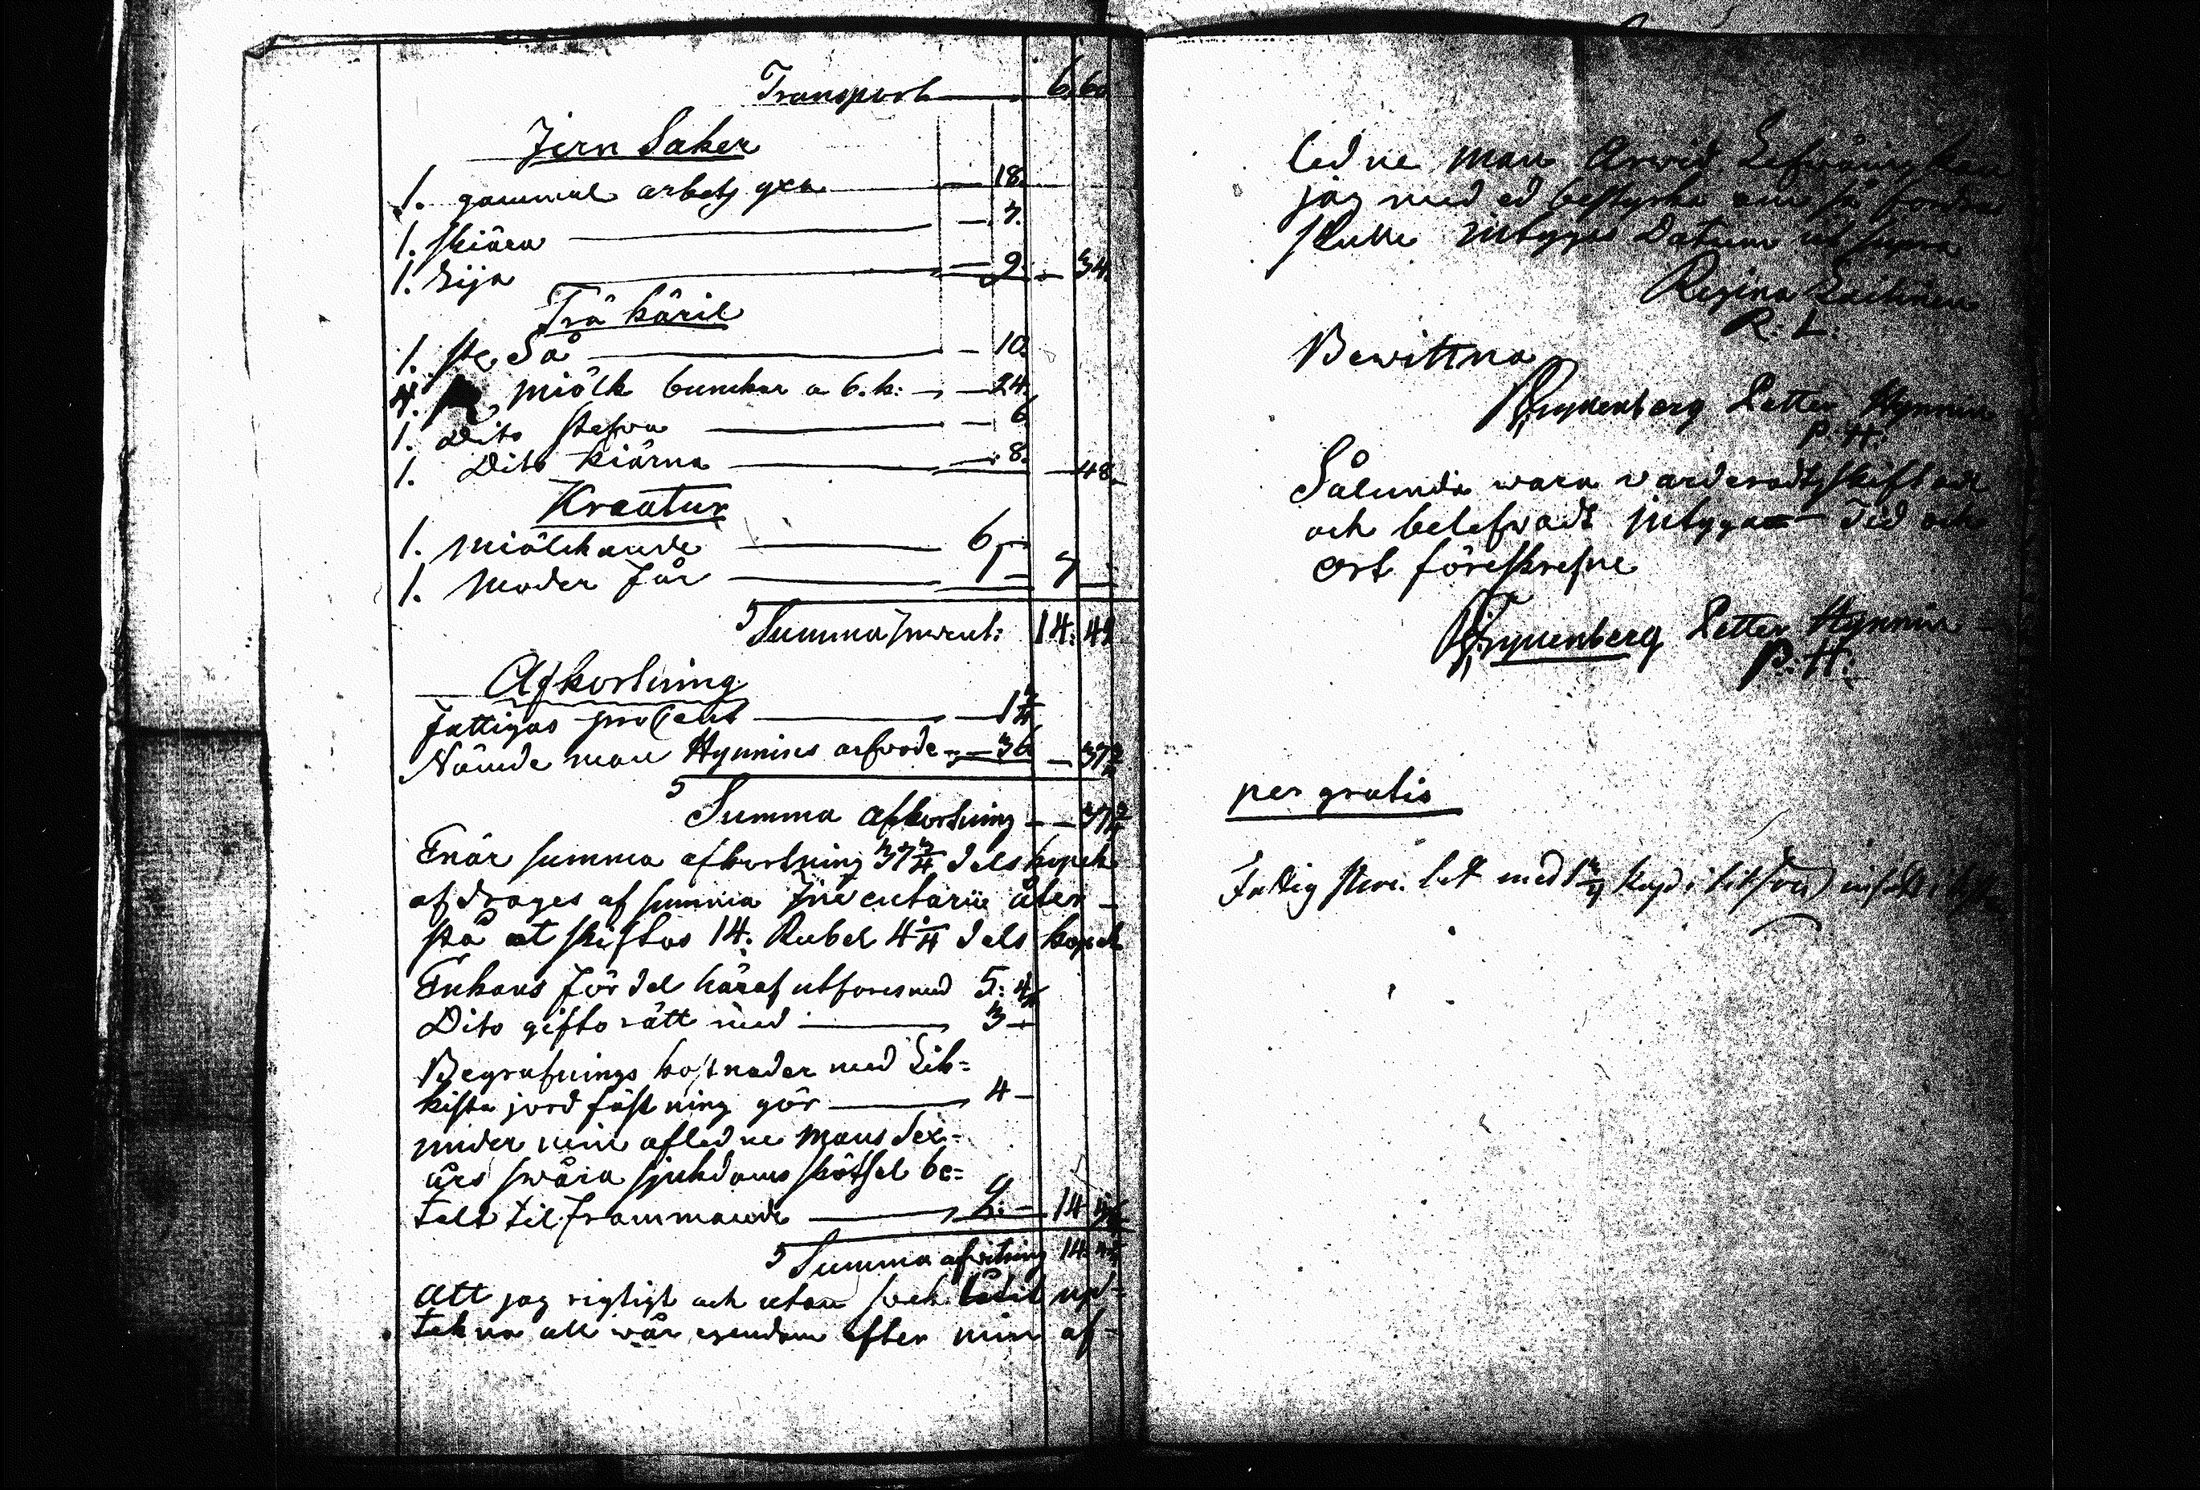 Transport — 6. 60
Jern Saker
1. gammal arbetz yxa — 18.
1. skiära — 7.
1. Lija — 9. — 34.
Trä käril
1. st. Så — 10.
4. miölk bunckar a 6. k: — 24.
1. Dito stefva — 6
1. Dito kiärna — 8. — 48.
Kreatur
1. miölckande — 6 —
1. moder Får — 1 — 7 —
Summa Invent: 14. 42
Afkortning
Fattigas procent — 1 3/4
Nämde man Hynnines arfvode — 36 — 37 3/4
Summa afkortning — 37 3/4
Enär summa afkortning 37 3/4 dels kopek
afdrages af summa Inventarii åter-
stå at skiftas 14. Rubel 4 1/4 dels kopek
Enkans Fördel häraf utföres med 5: 4 1/4
Dito giftorätt med — 3 —
Begrafnings kostnader med Lik-
kista jordfästning gör — 4 —
under min afledne mans Sex-
års swåra sjukdoms skötsel be-
talt til Frammande — 2: — 14 4 1/4
Summa afvitring 14. 4 1/4
Att jag rigtigt och utan svek låtit up-
tekna all wår egendom efter min af-
ledne man Arvid
jag med ed bestyrka om så fordras
skulle intygar Datum ut supra
Regina Laitinen
R: L:
Bewittna
Petter Hynninen
P: H:
Sålunda wara värderadt, skiftadt
och belefvadt intyga Tid och
ort föreskrefne
Petter Hynninen
P: H:
per gratis
Fattig med 1 3/4 kop: